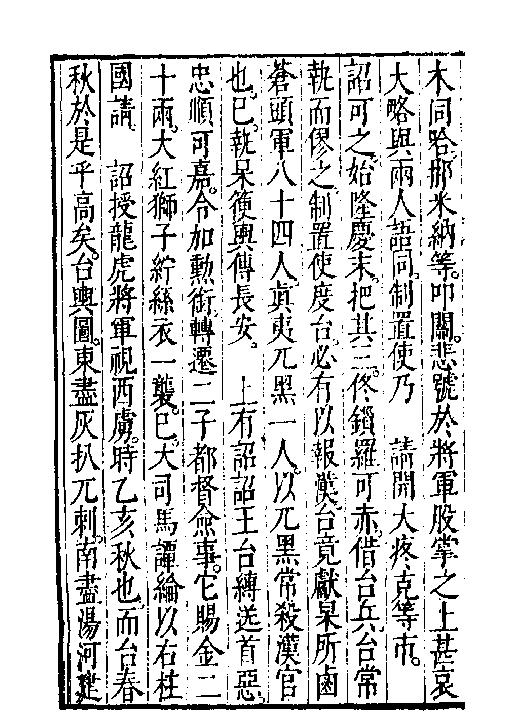 木同哈那米納等叩關悲號於將軍股掌之上甚哀
大略與兩人語同制置使乃 請開大疼克等市
詔可之始隆慶末把其三佟鎖羅可赤借台兵台常
執而僇之制置使度台必有以報漢台竟獻杲所鹵
蒼頭軍八十四人真夷兀黑一人以兀黑常殺漢官
也已執杲復輿傳長安 上有詔詔王台縛送首惡
忠順可嘉令加勳銜轉遷二子都督僉事它賜金二
十兩大紅獅子紵絲衣一襲已大司馬譚綸以右柱
國請 詔授龍虎將軍視西虜時乙亥秋也而台春
秋於是乎高矣台輿圖東盡灰扒兀刺南盡湯河建